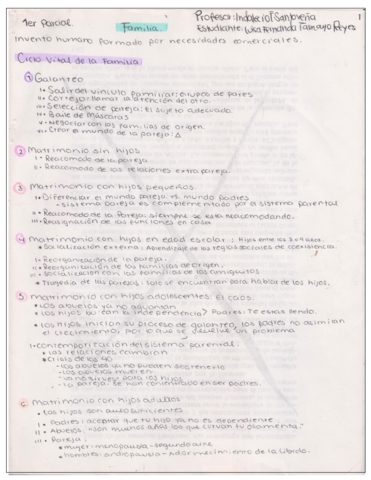 1er Parcial. Familia Profesor: Indalecio T Santoveña 1
Estudiante: Luisa Fernanda Tamayo Reyes
Invento humano formado por necesidades comerciales.
Ciclo Vital de la Familia
① Galanteo
I• Salir del vínculo familiar: Grupo de pares
II• Cortejo: llamar la atención del otro.
III• Selección de pareja: El sujeto adecuado.
IV• Baile de Máscaras
V• Negociar con las familias de origen.
VI• Crear el mundo de la pareja: Δ
② Matrimonio sin hijos
I• Reacomodo de la pareja
II• Reacomodo de las relaciones extra pareja.
③ Matrimonio con hijos pequeños.
I• Diferenciar el mundo pareja vs mundo padres
- sistema pareja es complementado por a sistema parental
II• Reacomodo de la Pareja: siempre se está reacomodando.
III• Reasignación de las funciones en casa
4 Matrimonio con hijos en edad escolar: Hijos entre los
• Socialización externa: Aprendizaje de las reglas sociales de coexistencia.
I• Reorganización de la pareja.
II• Reorganización de las familias de origen.
III• Socialización con las familias de los amiguitos
• Tragedia de las parejas: solo se encuentran para hablar de los hijos.
5 Matrimonio con hijos adolescentes: El caos.
• Los abuelos ya no apoyan
• Los hijos van con la independencia? Padres: Te estás yendo.
• Los hijos inician su proceso de galanteo, los padres no asimilan
el crecimiento, por lo que se devuelve un problema
I• Contemporización del sistema parental.
• Las relaciones cambian
• Crisis de los 40
- Los abuelos ya no pueden sostenerlo
- Los abuelos mueren
- ya no sirven para los hijos
- La pareja: se han conformado en ser padres.
6 Matrimonio con hijos adultos
• Los hijos son autosuficientes
I• Padres: aceptar que tu hijo ya no es dependiente
II• Abuelos: son muchos años los que
III• Pareja:
• mujer: menopausia - segundo aire
• hombres: andropausia - adormecimiento de la libido.